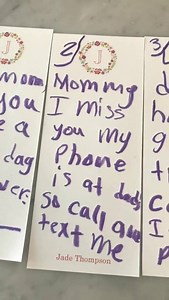 2)
J
Mommy
I miss
you my
phone
is at dads
so call and
text me
Jade Thompson
J
Mom
you
e a
dag
ver.
3)
d
h
g
t
c
I
p